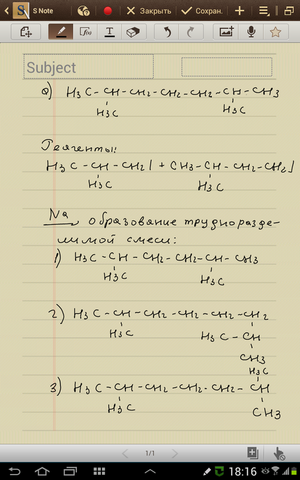 S Note Закрыть Сохран.
Subject
а) H3C-CH-CH2-CH2-CH2-CH-CH3
H3C H3C
Реагенты:
H3C-CH-CH2I + CH3-CH-CH2-CH2I
H3C H3C
Na образование трудноразде-
лимой смеси:
1) H3C-CH-CH2-CH2-CH-CH3
H3C H3C
2) H3C-CH-CH2-CH2-CH2-CH2
H3C H3C-CH
CH3
H3C
3) H3C-CH-CH2-CH2-CH2-CH
H3C CH3
1/1
18:16